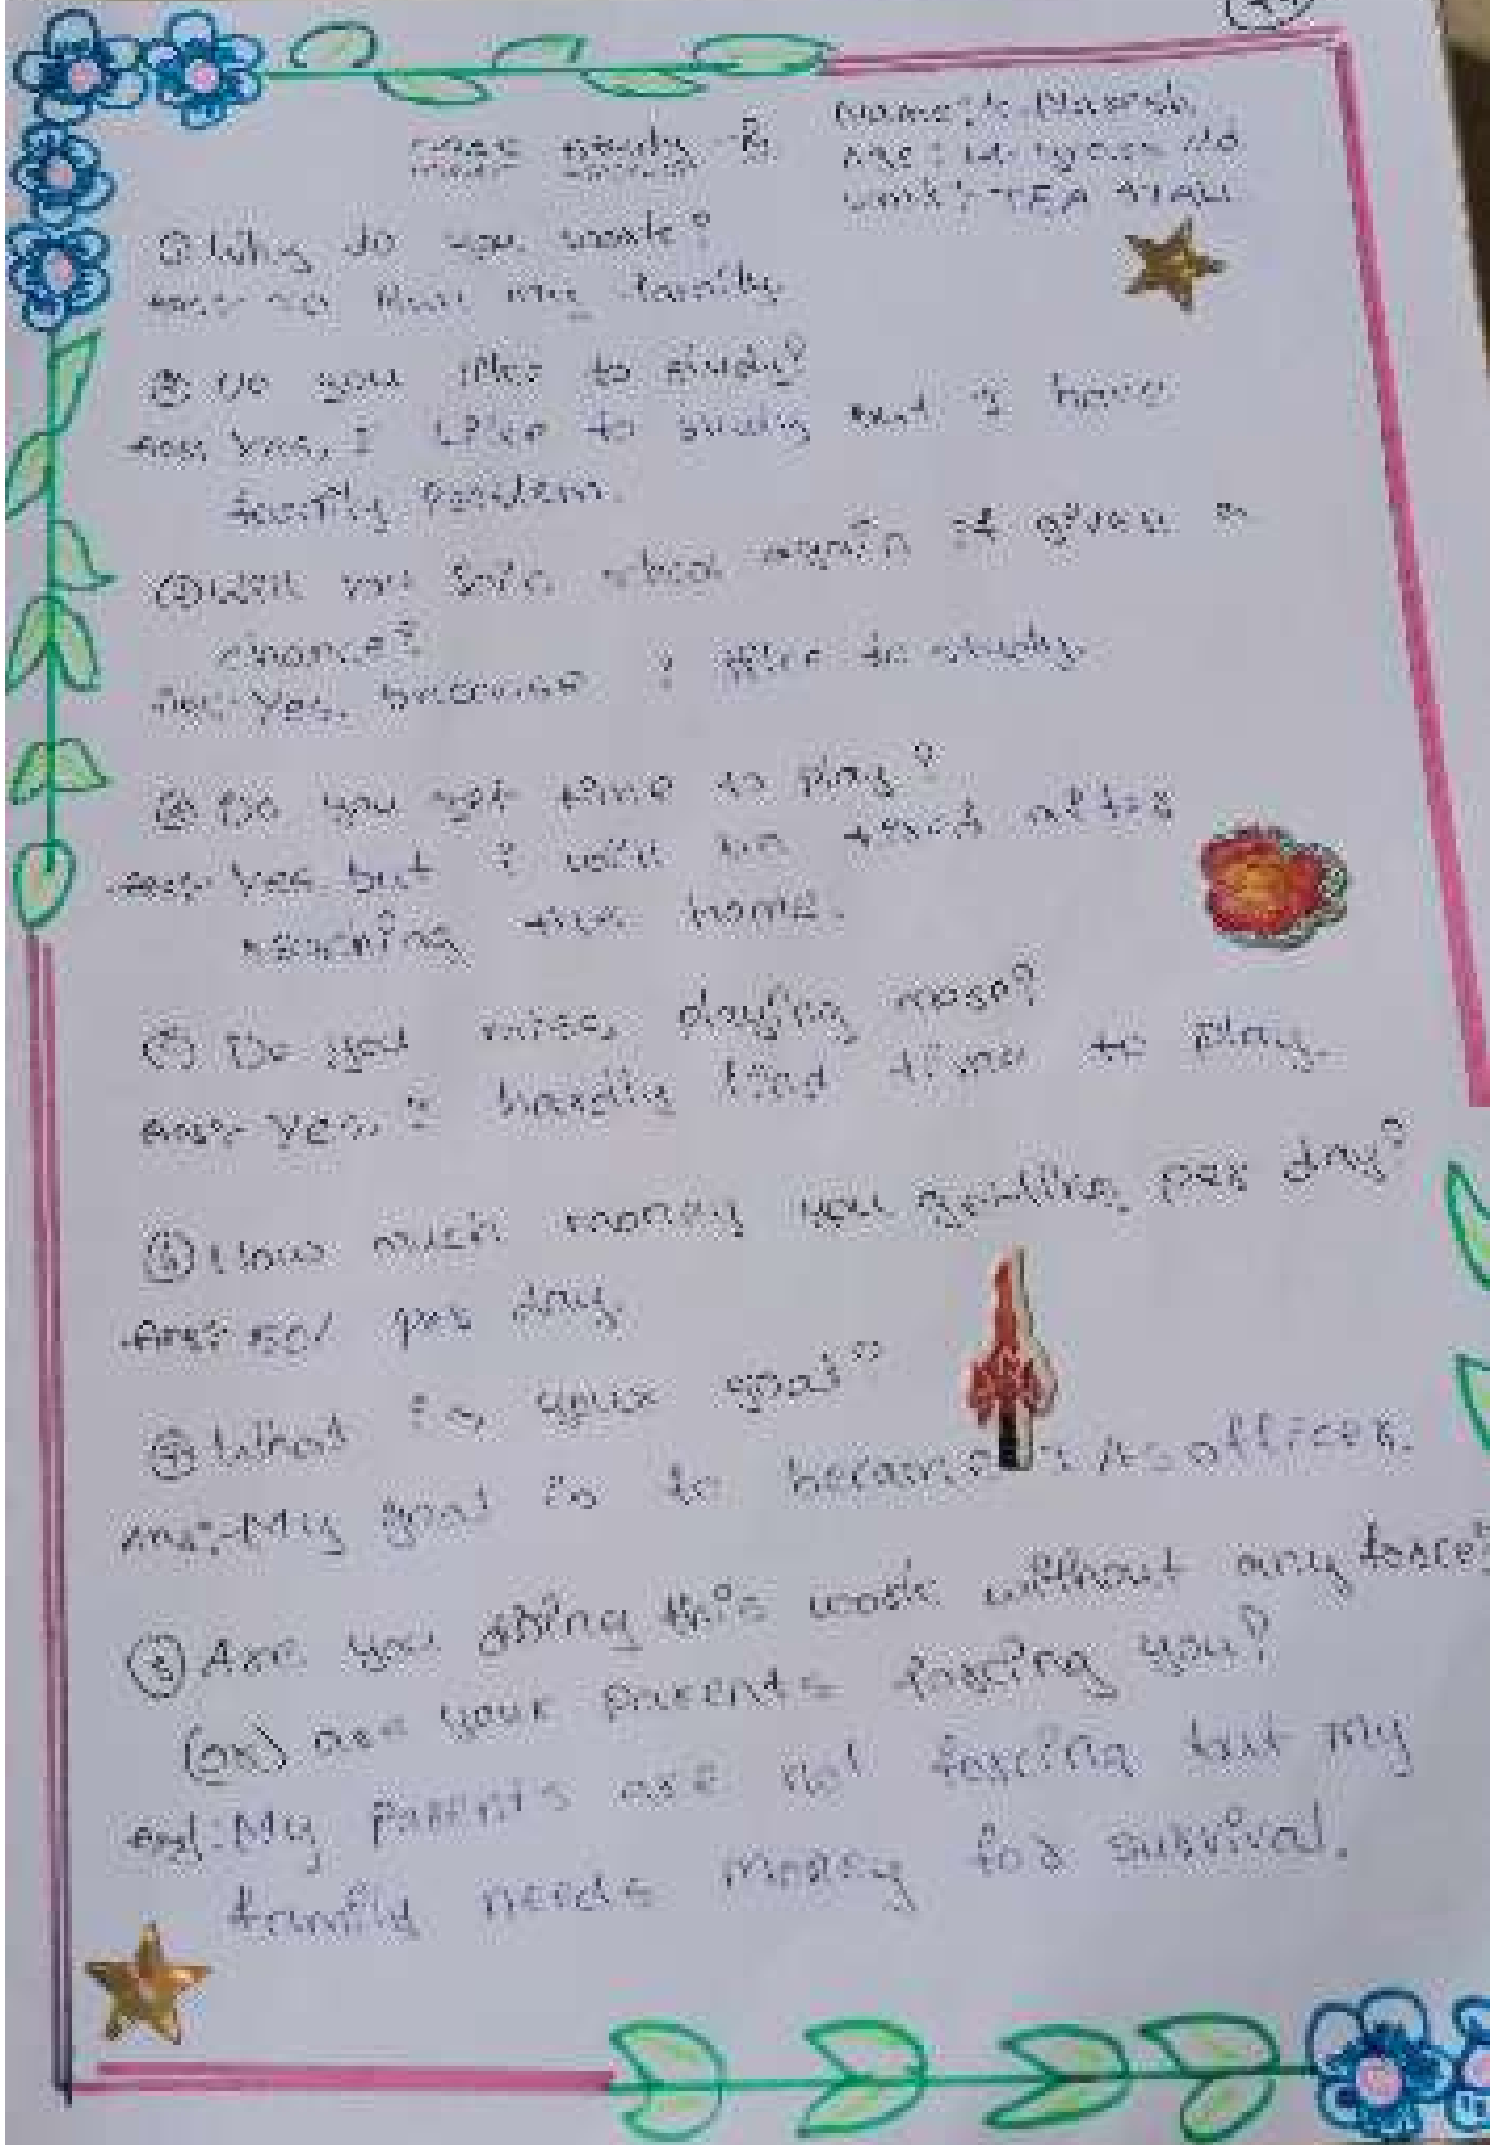 case study -
Name: K. Naresh
Age: years old
Work: TEA STALL
① Why do you work?
Ans:- To my family
② Do you like to study?
Ans:- Yes, I like to study but I have
family problem.
③ Will you join school again if given a
chance?
Ans:- Yes, because I like to study.
④ Do you get time to play?
Ans:- Yes but I will be tired after
reaching home.
⑤ Do you miss playing
Ans:- Yes, I hardly find time to play.
⑥ How much money you getting per day?
Ans:- 50/ per day.
⑦ What is your goal?
Ans:- My goal is to officer.
⑧ Are you doing this work without any force?
(or) are your parents forcing you?
Ans:- My parents are not forcing but my
family needs money for survival.